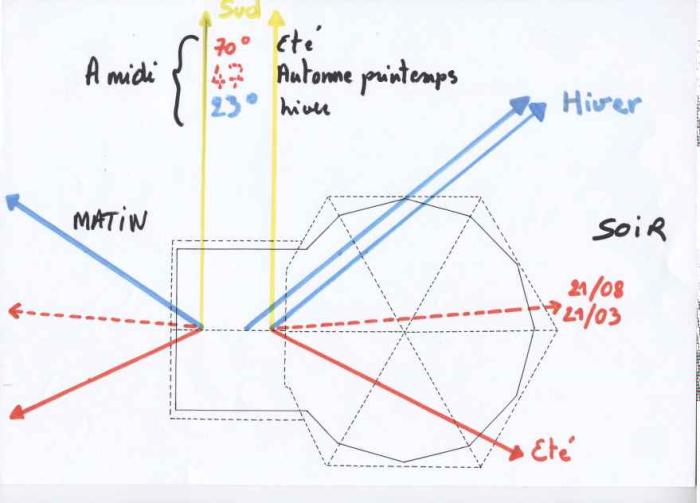 Sud
A midi
70° Eté
47 Automne printemps
23° hiver
Hiver
MATIN
SOIR
21/08
21/03
Eté